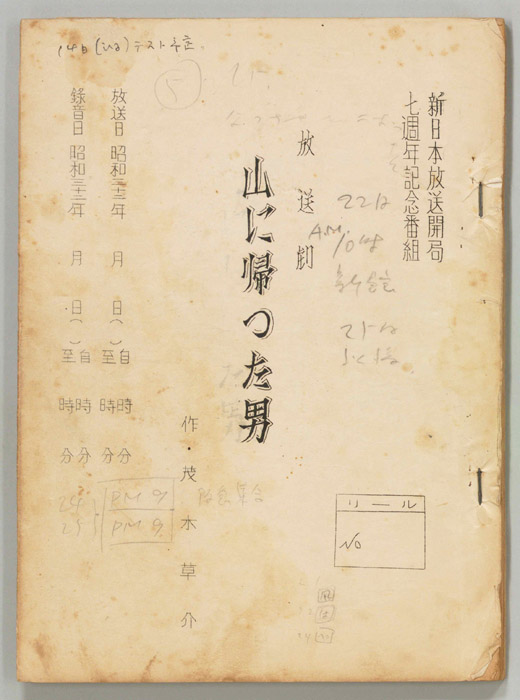 14日(ひる)テスト予定
5
新日本放送開局
七週年記念番組
放送劇
山に帰つた男
作・茂木草介
22日
AM.10時
25日
放送日 昭和三十二年 月 日( ) 自 時 分
至 時 分
録音日 昭和三十二年 月 日( ) 自 時 分
至 時 分
24
25
PM 9
PM 9.
リール
No